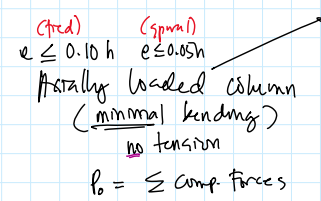 (tied) (spiral)
e ≤ 0.10 h e ≤ 0.05h
Axially loaded column
(minimal bending)
no tension
P₀ = Σ comp. Forces